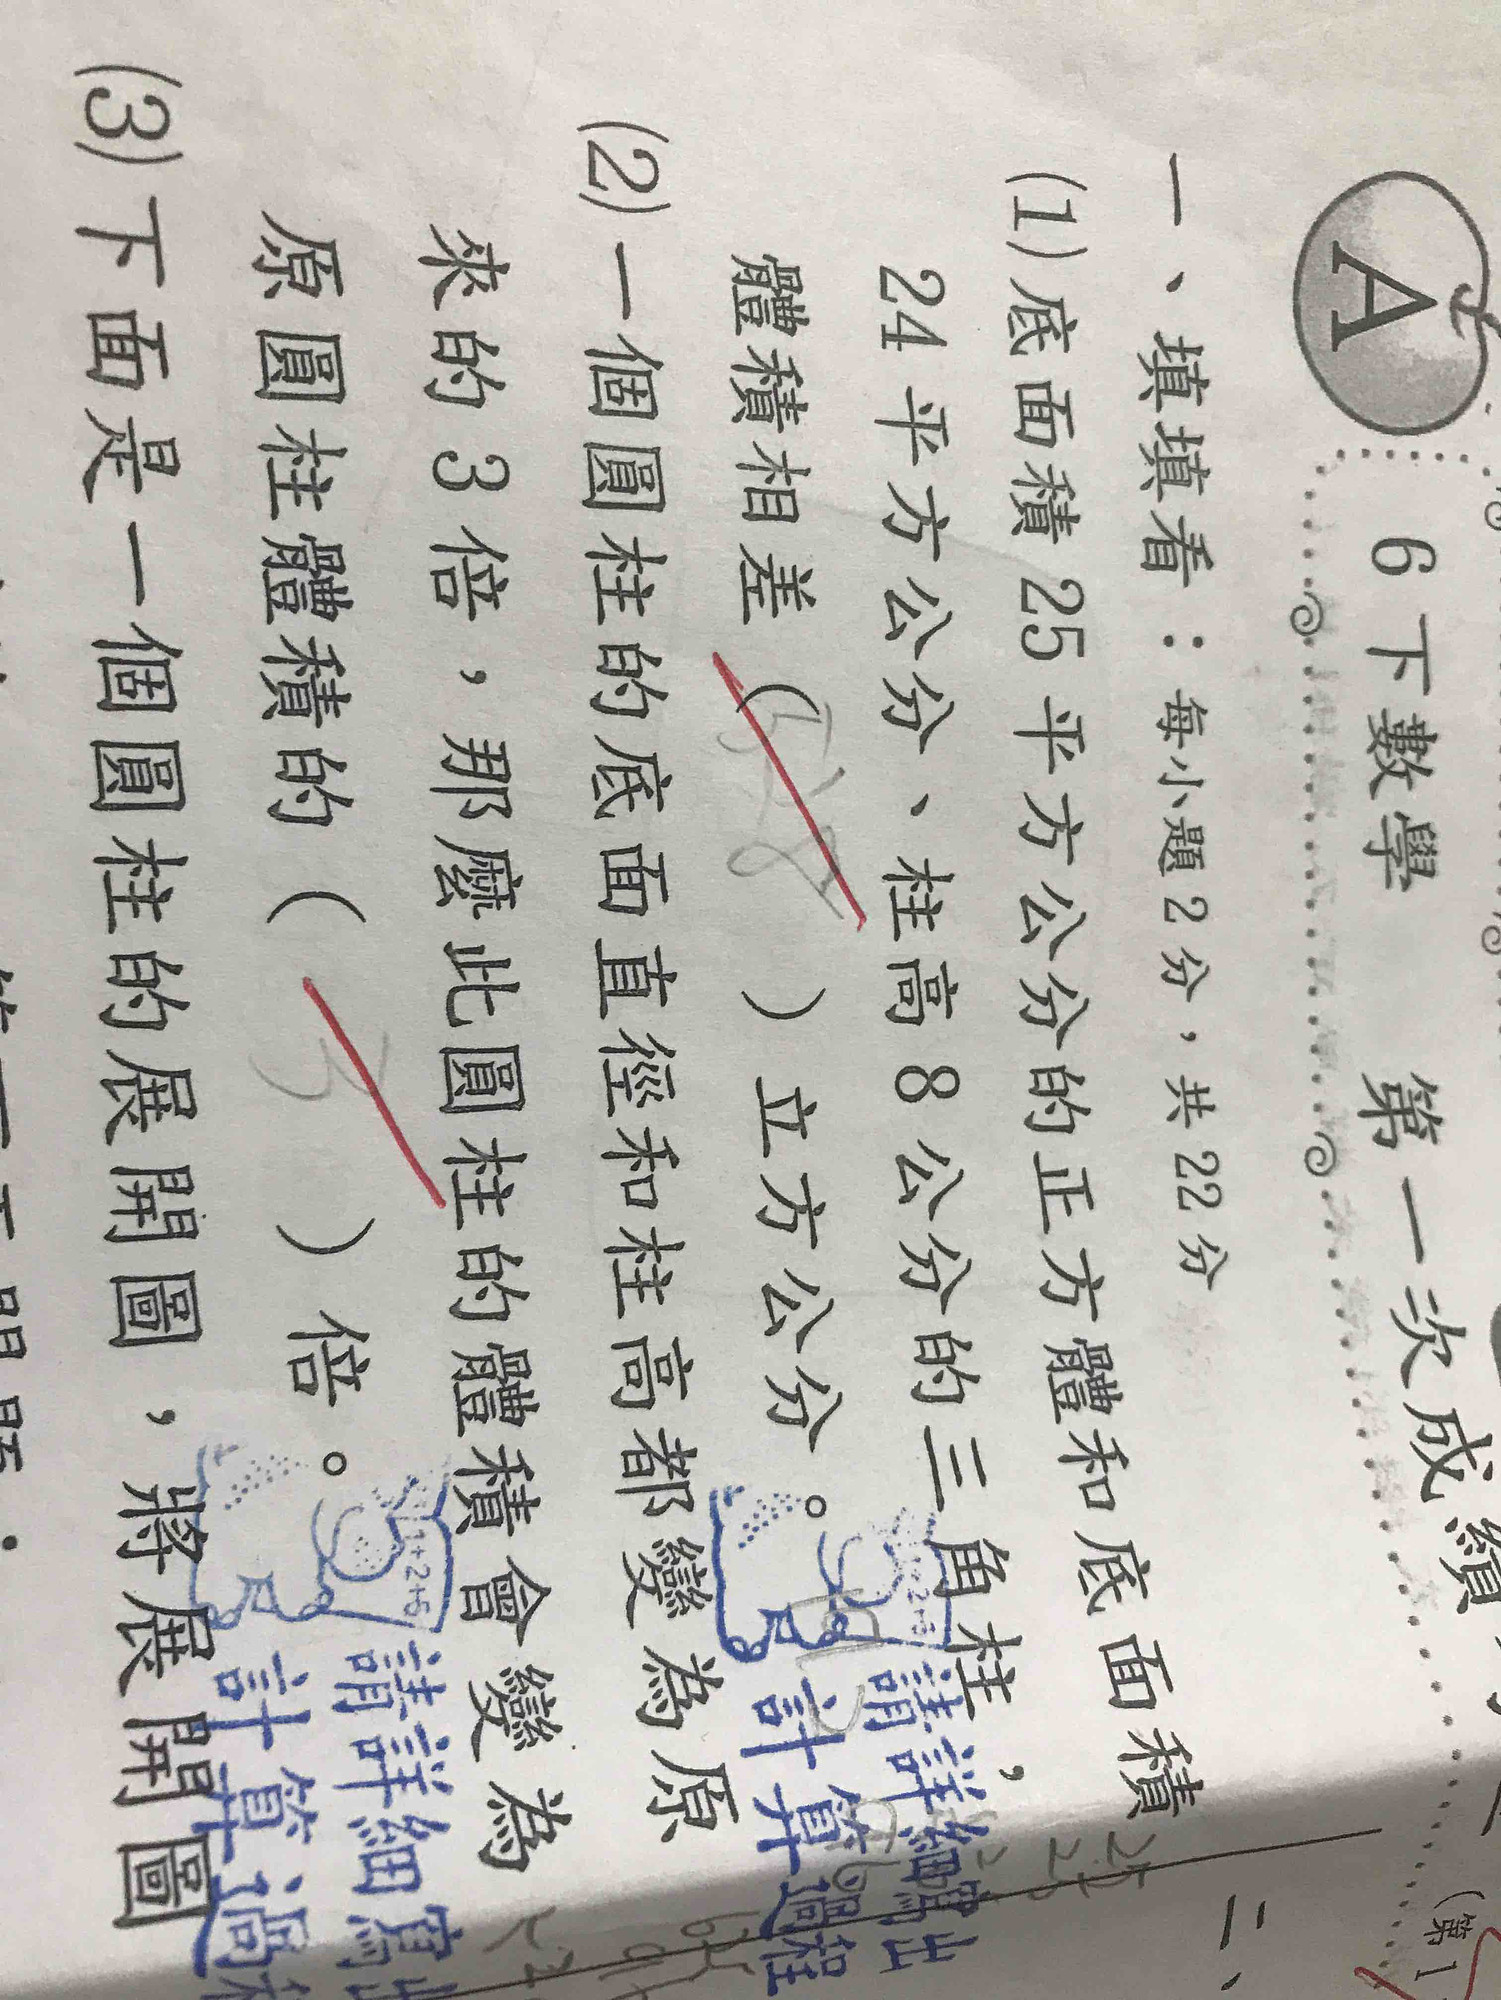 A 6下數學 第一次成績
(第1
一、填填看:每小題2分,共22分
(1)底面積25平方公分的正方體和底面積
24平方公分、柱高8公分的三角柱,
體積相差( )立方公分。
請詳細寫出
計算過程
(2)一個圓柱的底面直徑和柱高都變為原
來的3倍,那麼此圓柱的體積會變為
原圓柱體積的( 3 )倍。
請詳細寫出
計算過程
(3)下面是一個圓柱的展開圖,將展開圖
二、